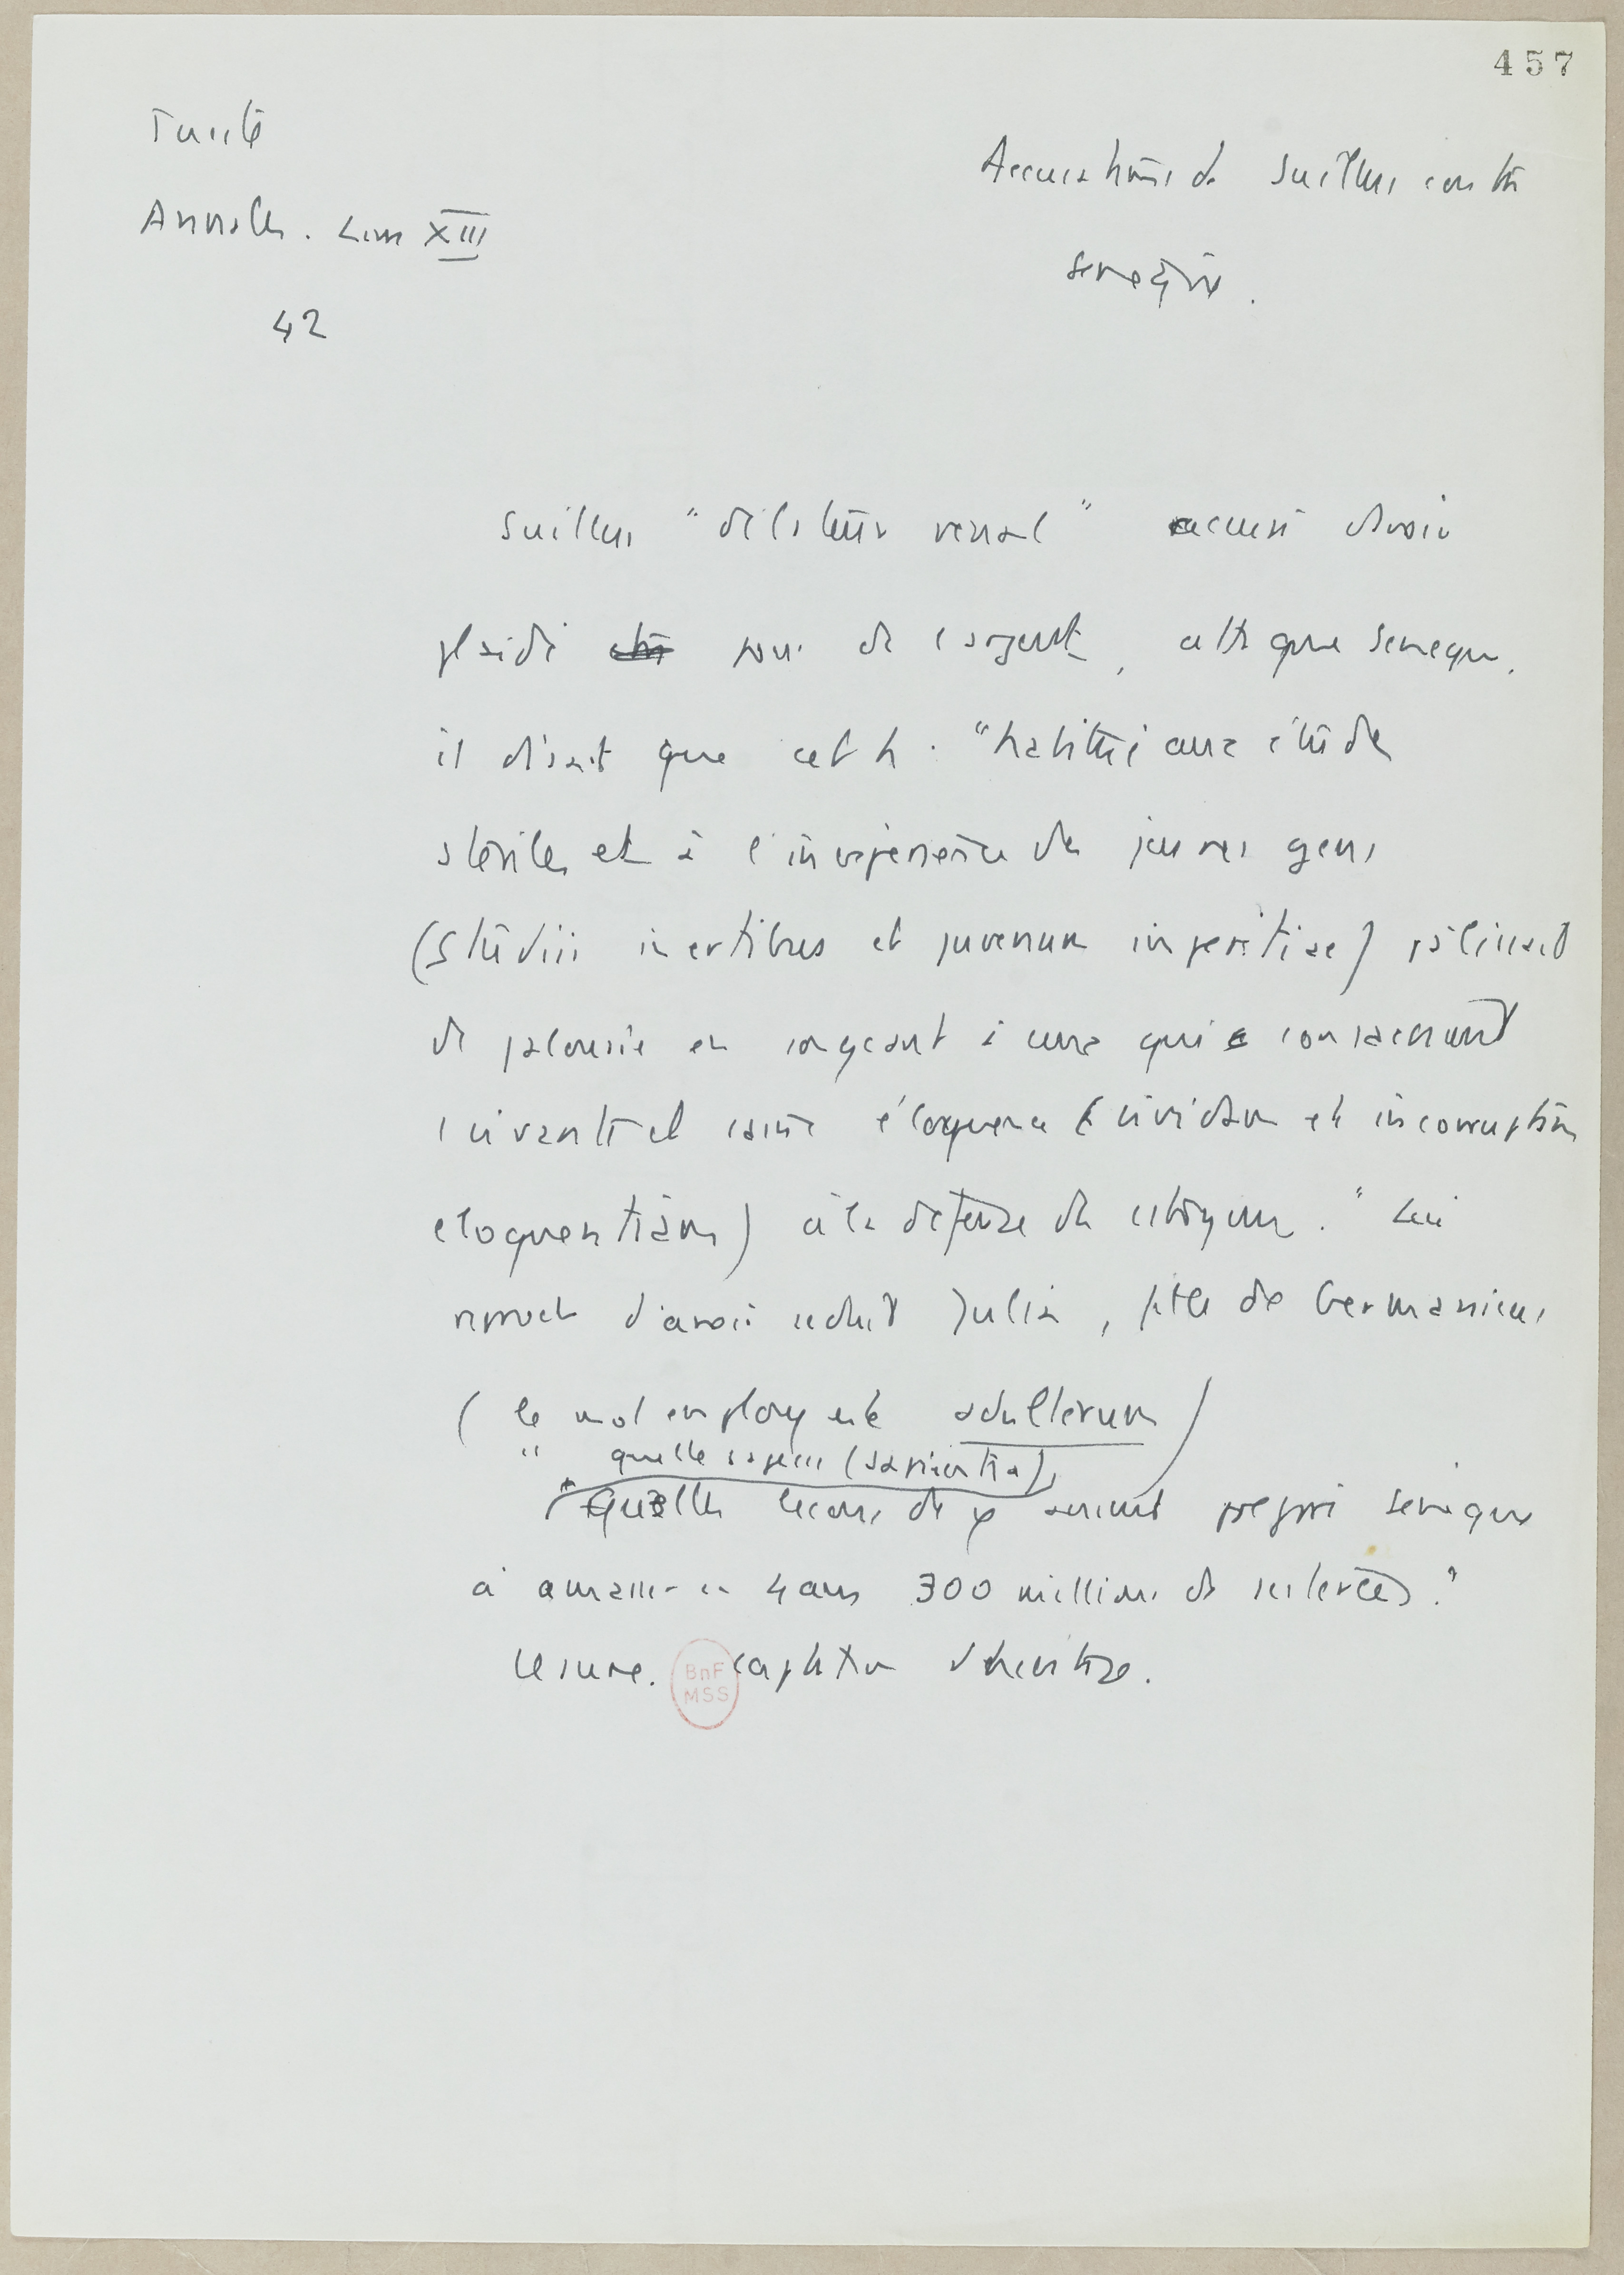 457
Tacite
Annales. Livre XIII
42
Accusations de Suillus contre
Sénèque.
Suillus "délateur vénal" accusé d'avoir
plaidé pour de l'argent, attaque Sénèque.
il disait que cet h. "habitué aux études
stériles et à l'inexpérience des jeunes gens
(studiis inertibus et juvenum imperitiae) pâlissait
de jalousie en songeant à ceux qui consacrent
vivante et saine éloquence (vividam et incorruptam
eloquentiam) à la défense des citoyens." Lui
reproche d'avoir séduit Julia, fille de Germanicus
(le mot employé est adulterum)
" quelle sagesse (sapientia),
Quelles leçons de φ avaient
à amasser en 4 ans 300 millions de sesterces?"
Usure. captation d'héritage.
BnF
MSS